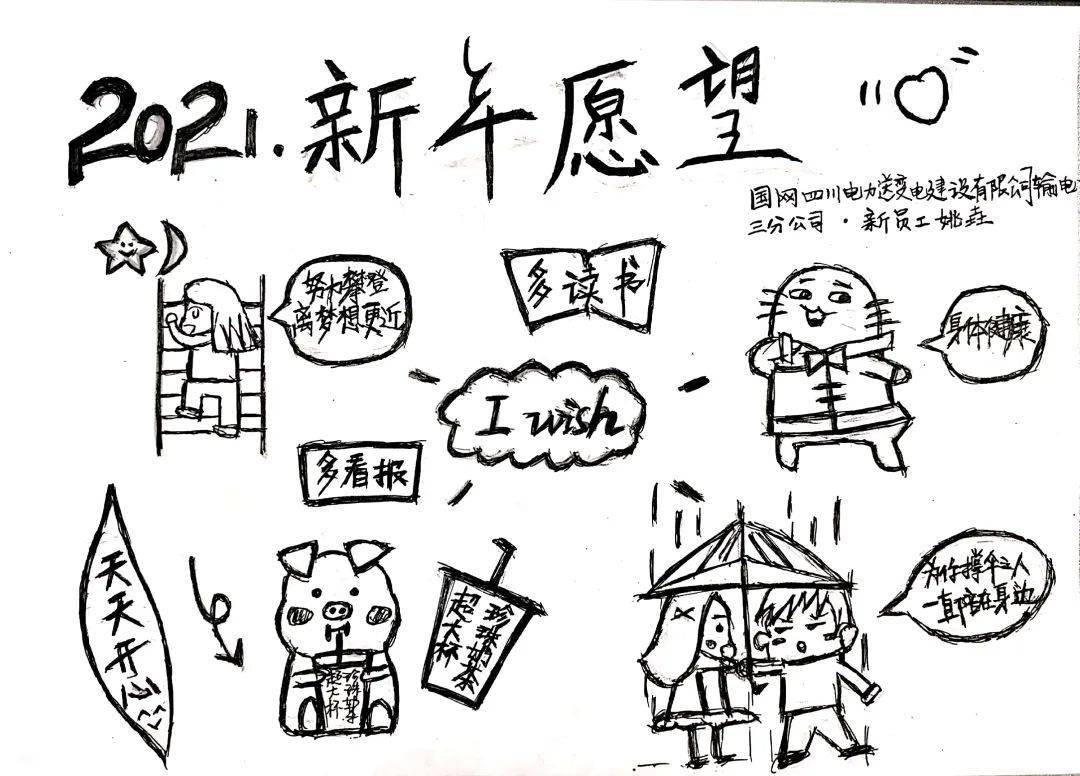 2021.新年愿望
国网四川电力送变电建设有限公司输电
三分公司·新员工姚垚
努力攀登
离梦想更近
多读书
身体健康
I wish
多看报
天天开心
超大杯
珍珠奶茶
超大杯
珍珠奶茶
为你撑伞之人
一直陪在身边